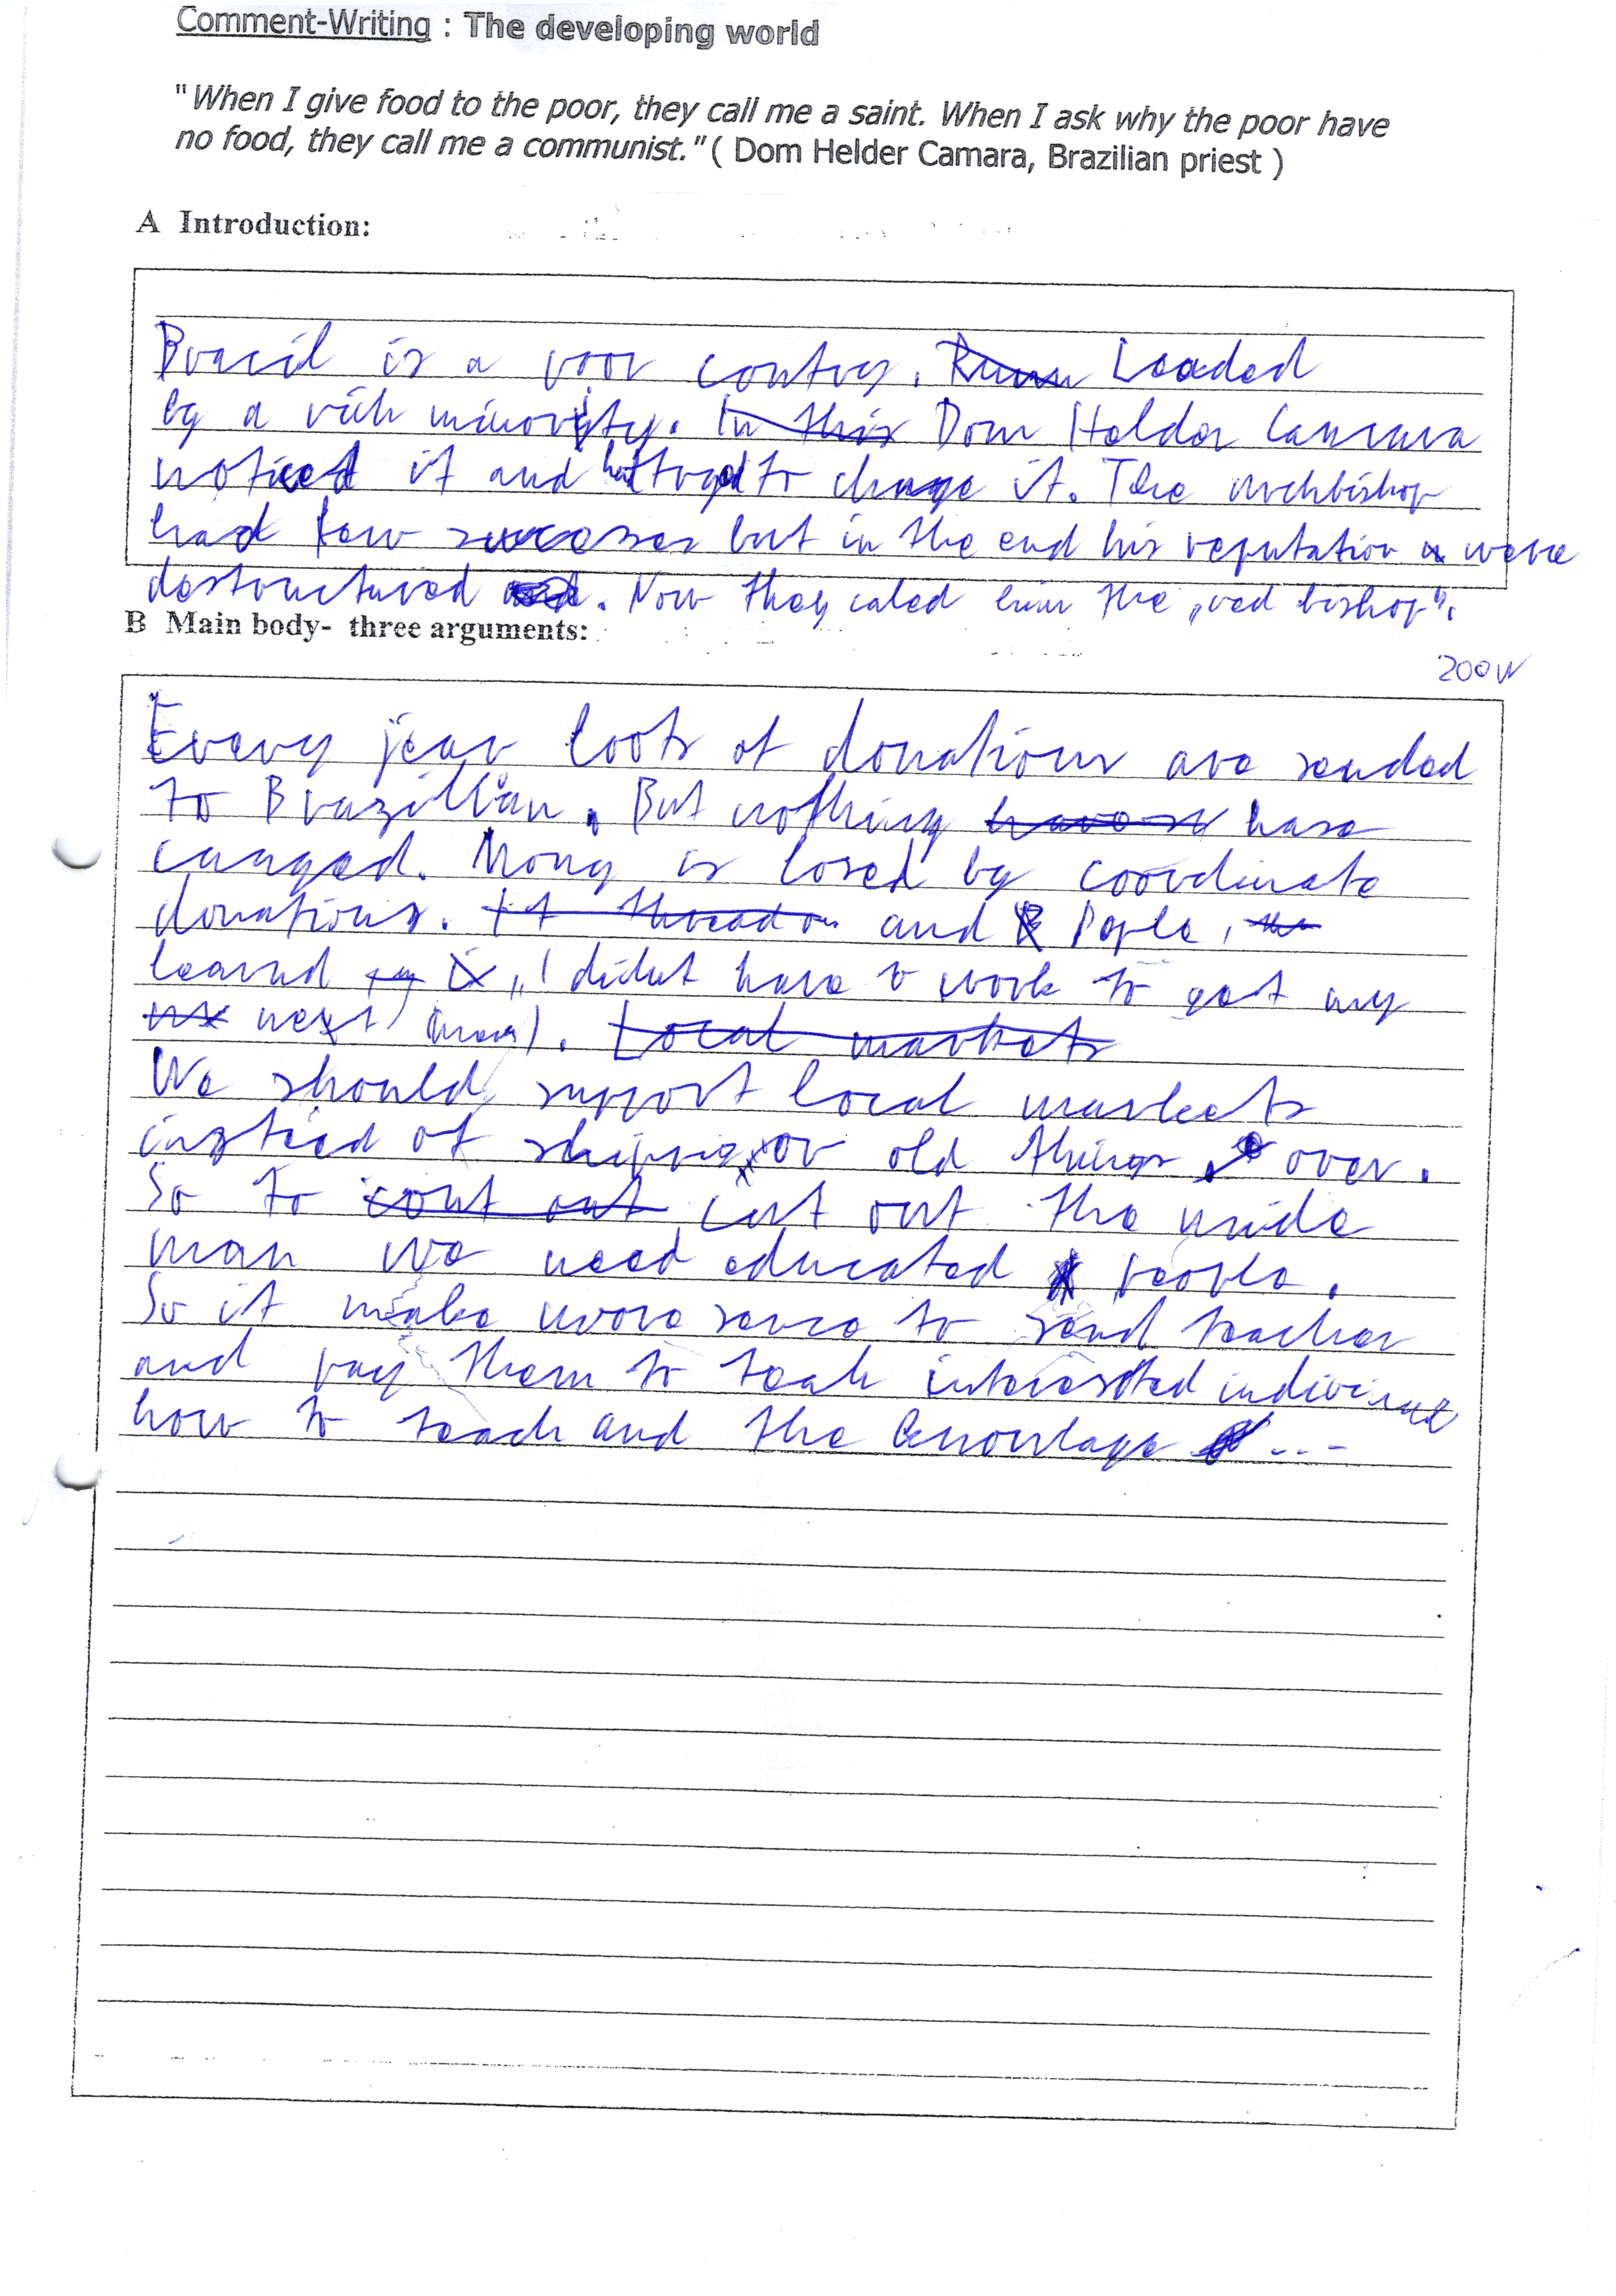 Comment-Writing : The developing world
"When I give food to the poor, they call me a saint. When I ask why the poor have
no food, they call me a communist." ( Dom Helder Camara, Brazilian priest )
A Introduction:
Bracil is a poor contry. Leaded
by a rich minority. Dom Helder Camara
noticed it and to change it. The archbishop
had few succeses but in the end his reputation were
destructured. Now they caled him the „red bishop".
B Main body- three arguments:
200W
Every jear loots of donations are sended
to Brazillian. But nothing hase
canged. Mony is losed by coordinate
donations. and Pople,
learnd „I didnt have to work to get my
next meal).
We should support local markets
instied of shipping or old things over.
So to cut out the midle
man we need educated people.
So it make more sence to send teacher
and pay them to teach interested
how to teach and the knowlage ...